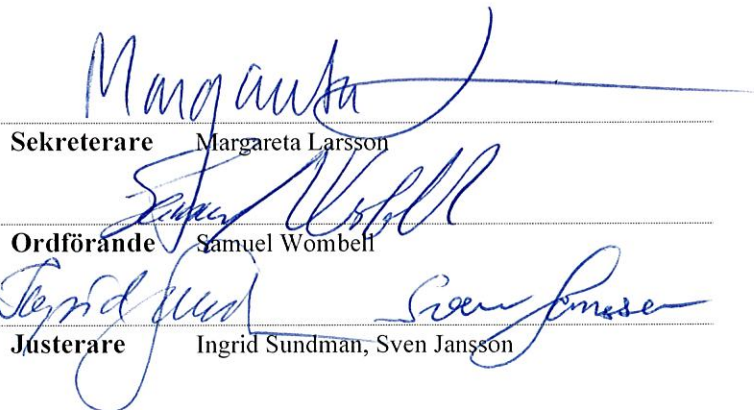 Margareta
Sekreterare Margareta Larsson
Samuel Wombell
Ordförande Samuel Wombell
Ingrid Sund Sven Jansson
Justerare Ingrid Sundman, Sven Jansson